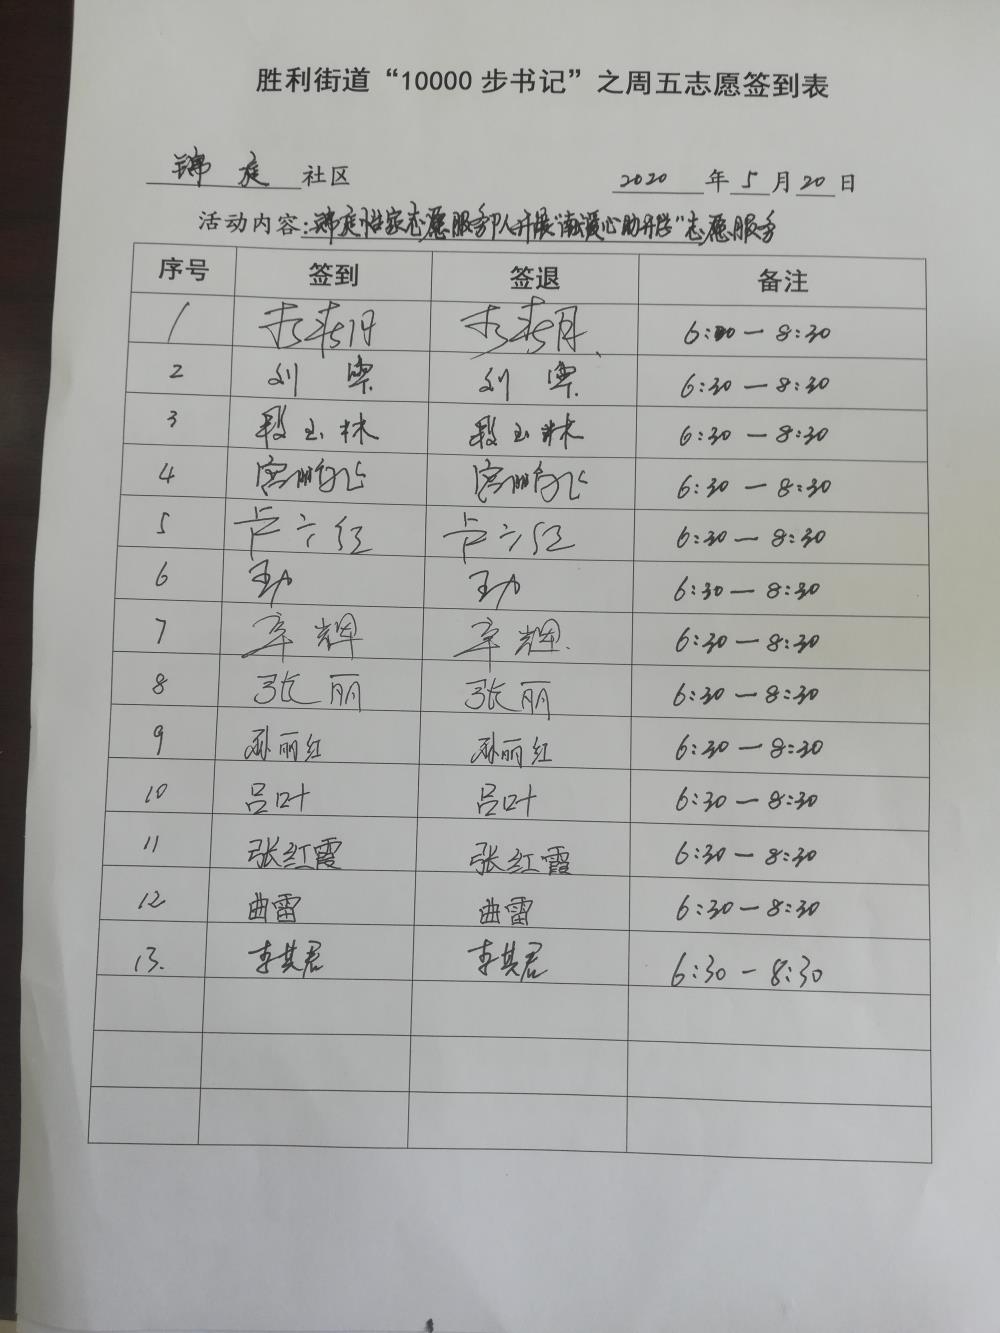 胜利街道“10000步书记”之周五志愿签到表
锦庭社区 2020年5月20日
活动内容:锦庭怡家志愿服务人开展“献爱心助开学”志愿服务
序号 签到 签退 备注
1 6:30—8:30
2 刘 6:30—8:30
3 段玉林 段玉林 6:30—8:30
4 宫 宫 6:30—8:30
5 卢六红 卢六红 6:30—8:30
6 6:30—8:30
7 辛辉 辛辉 6:30—8:30
8 张丽 张丽 6:30—8:30
9 孙丽红 孙丽红 6:30—8:30
10 吕叶 吕叶 6:30—8:30
11 张红霞 张红霞 6:30—8:30
12 曲雷 曲雷 6:30—8:30
13. 李其君 李其君 6:30—8:30